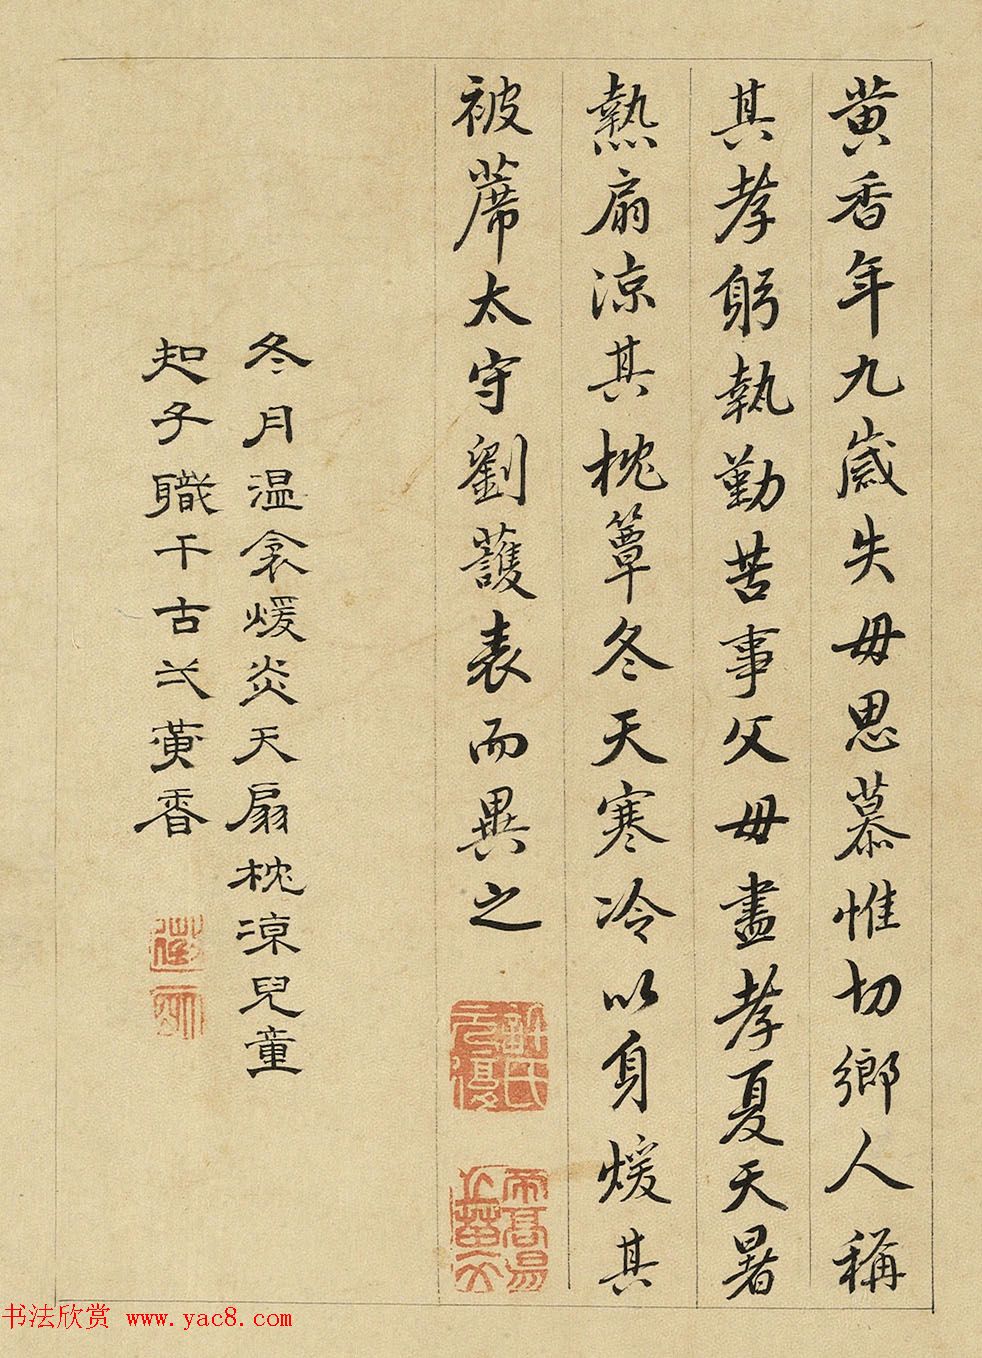 黃香年九歲失母思慕惟切鄉人稱
其孝躬執勤苦事父母盡孝夏天暑
熱扇涼其枕簟冬天寒冷以身煖其
被蓆太守劉護表而異之
冬月温衾煖炎天扇枕涼兒童
知子職千古弌黃香
书法欣赏 www.yac8.com